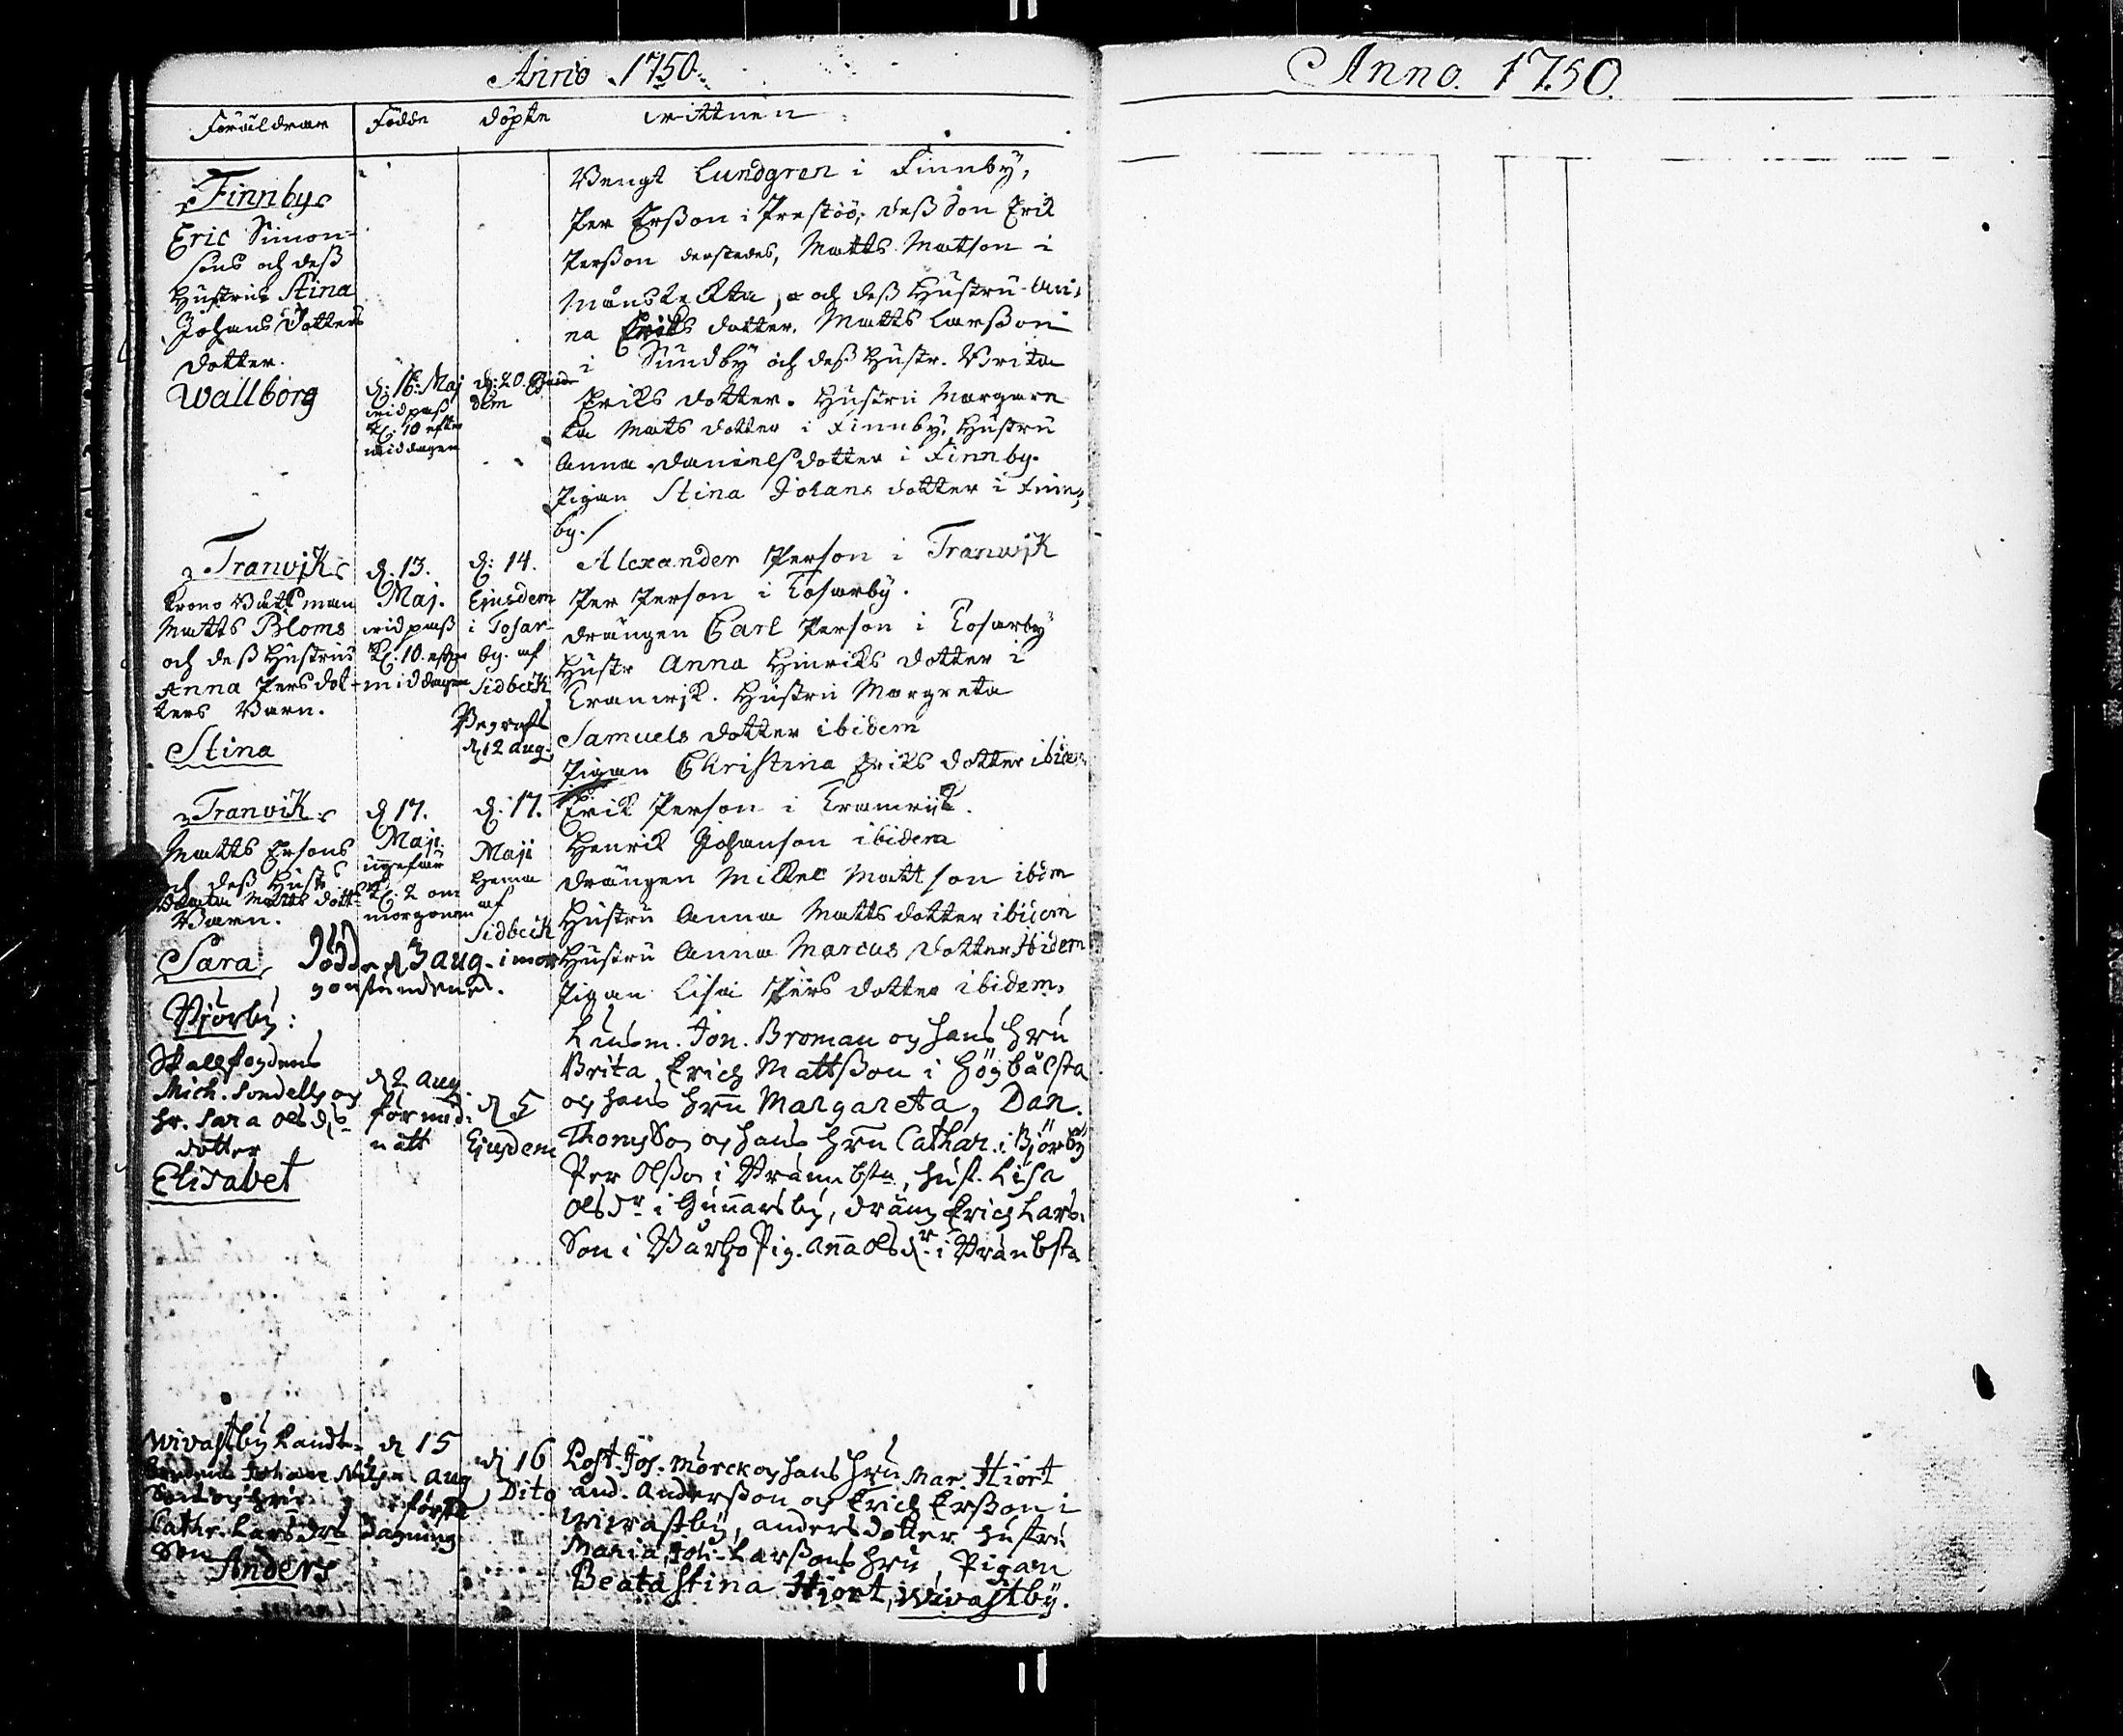 Anno 1750.
Föräldrar Födde döpte wittnen
Finnby
Eric Simon-
sons och deß
Hustrus Stina
Johans Dotters
dotter.
Wallborg
d: 16: Maj
wid paß
kl: 10 efter
middagen
d: 20. Ejusdem
Bengt Lundgren i Finnby,
Per Erßon i Prestöö, deß Son Erik
Perßon derstedes, Matts Matson i
Månskeckta, och deß Hustru An-
na Eriks dotter. Matts Larßon
i Sundby och deß Hustr. Brita
Eriks dotter. Hustru Margare
ta Mats dotter i Finnby. Hustru
Anna Danielsdotter i Finnby.
Pigan Stina Johans dotter i Finn-
by.
Tranvik
Krono Båtsman
Matts Bloms
och deß Hustrus
Anna Persdot-
ters Barn.
Stina
d. 13.
Maj.
wid paß
kl: 10. efter
middagen
d: 14.
Ejusdem
i Tosar-
by. af
Sidbeck
Begrafs
d 12 aug.
Alexander Person i Tranwik
Per Person i Tosarby.
drängen Carl Person i Tosarby
Hustr Anna Hinriks dotter i
Tranwik. Hustru Margreta
Samuels dotter ibidem
Pigan Christina Eriks dotter ibidem
Tranvik
Matts Ersons
och deß Hust
Matts dott
Barn.
Sara
d 17.
Maji.
ungefär
kl: 2 om
morgonen
d. 17.
Maji
Hema
af
Sidbeck
Död d 3 aug. i mor
gonstunden.
Erik Person i Tranvik.
Henrik Johanson ibidem
drängen Mickel Mattson ibm
Hustru Anna Mattsdotter ibidem
Hustru Anna Marcus dotter Ibidem
Pigan Lisa Pers dotter ibidem.
Björby:
Skallfogdens
Mich. Sondells och
hr. Sara Ols drs
dotter
Elisabet
d 2 aug
för mid-
natt
d 5
Ejusdem
Länsm. Jon. Broman och hans hru
Brita, Erich Mattßon i Högbålsta
och hans hru Margareta, Dan.
Thomßon och hans hru Cathar. i Björby
Per Olßon i Brännbsta, hust. Lisa
Olsdr i Gunnarsby, dräng Erich Lars-
Son i Wargo Pig. Anna Olsdr. i Bränbsta
Wivastby Landt-
Johan Nilßn
Son och hru
Cathr. Lars drs
Son Anders
d 15
aug
i första
Dagning
d 16
Dito
Post. Joh. Mörck och hans hru Mar. Hiort
And. Anderßon och Erich Erßon i
Wivastby, Anders dotter hustru
Maria, Joh. Larßons hru, Pigan
Beata Stina Hjort, Wivastby.
Anno. 1750.